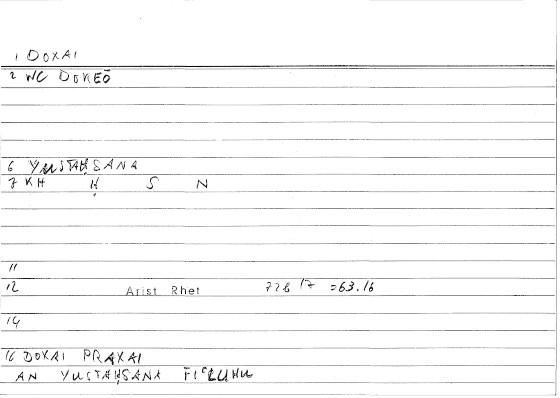 1 DOXAI
2 WC DOKEŌ
6 YUSTAḤSANA
7 KH Ḥ S N
11
12 Arist Rhet 77b 17 =63.16
14
16 DOXAI PRAXAI
AN YUSTAḤSANA FIʿLUHU